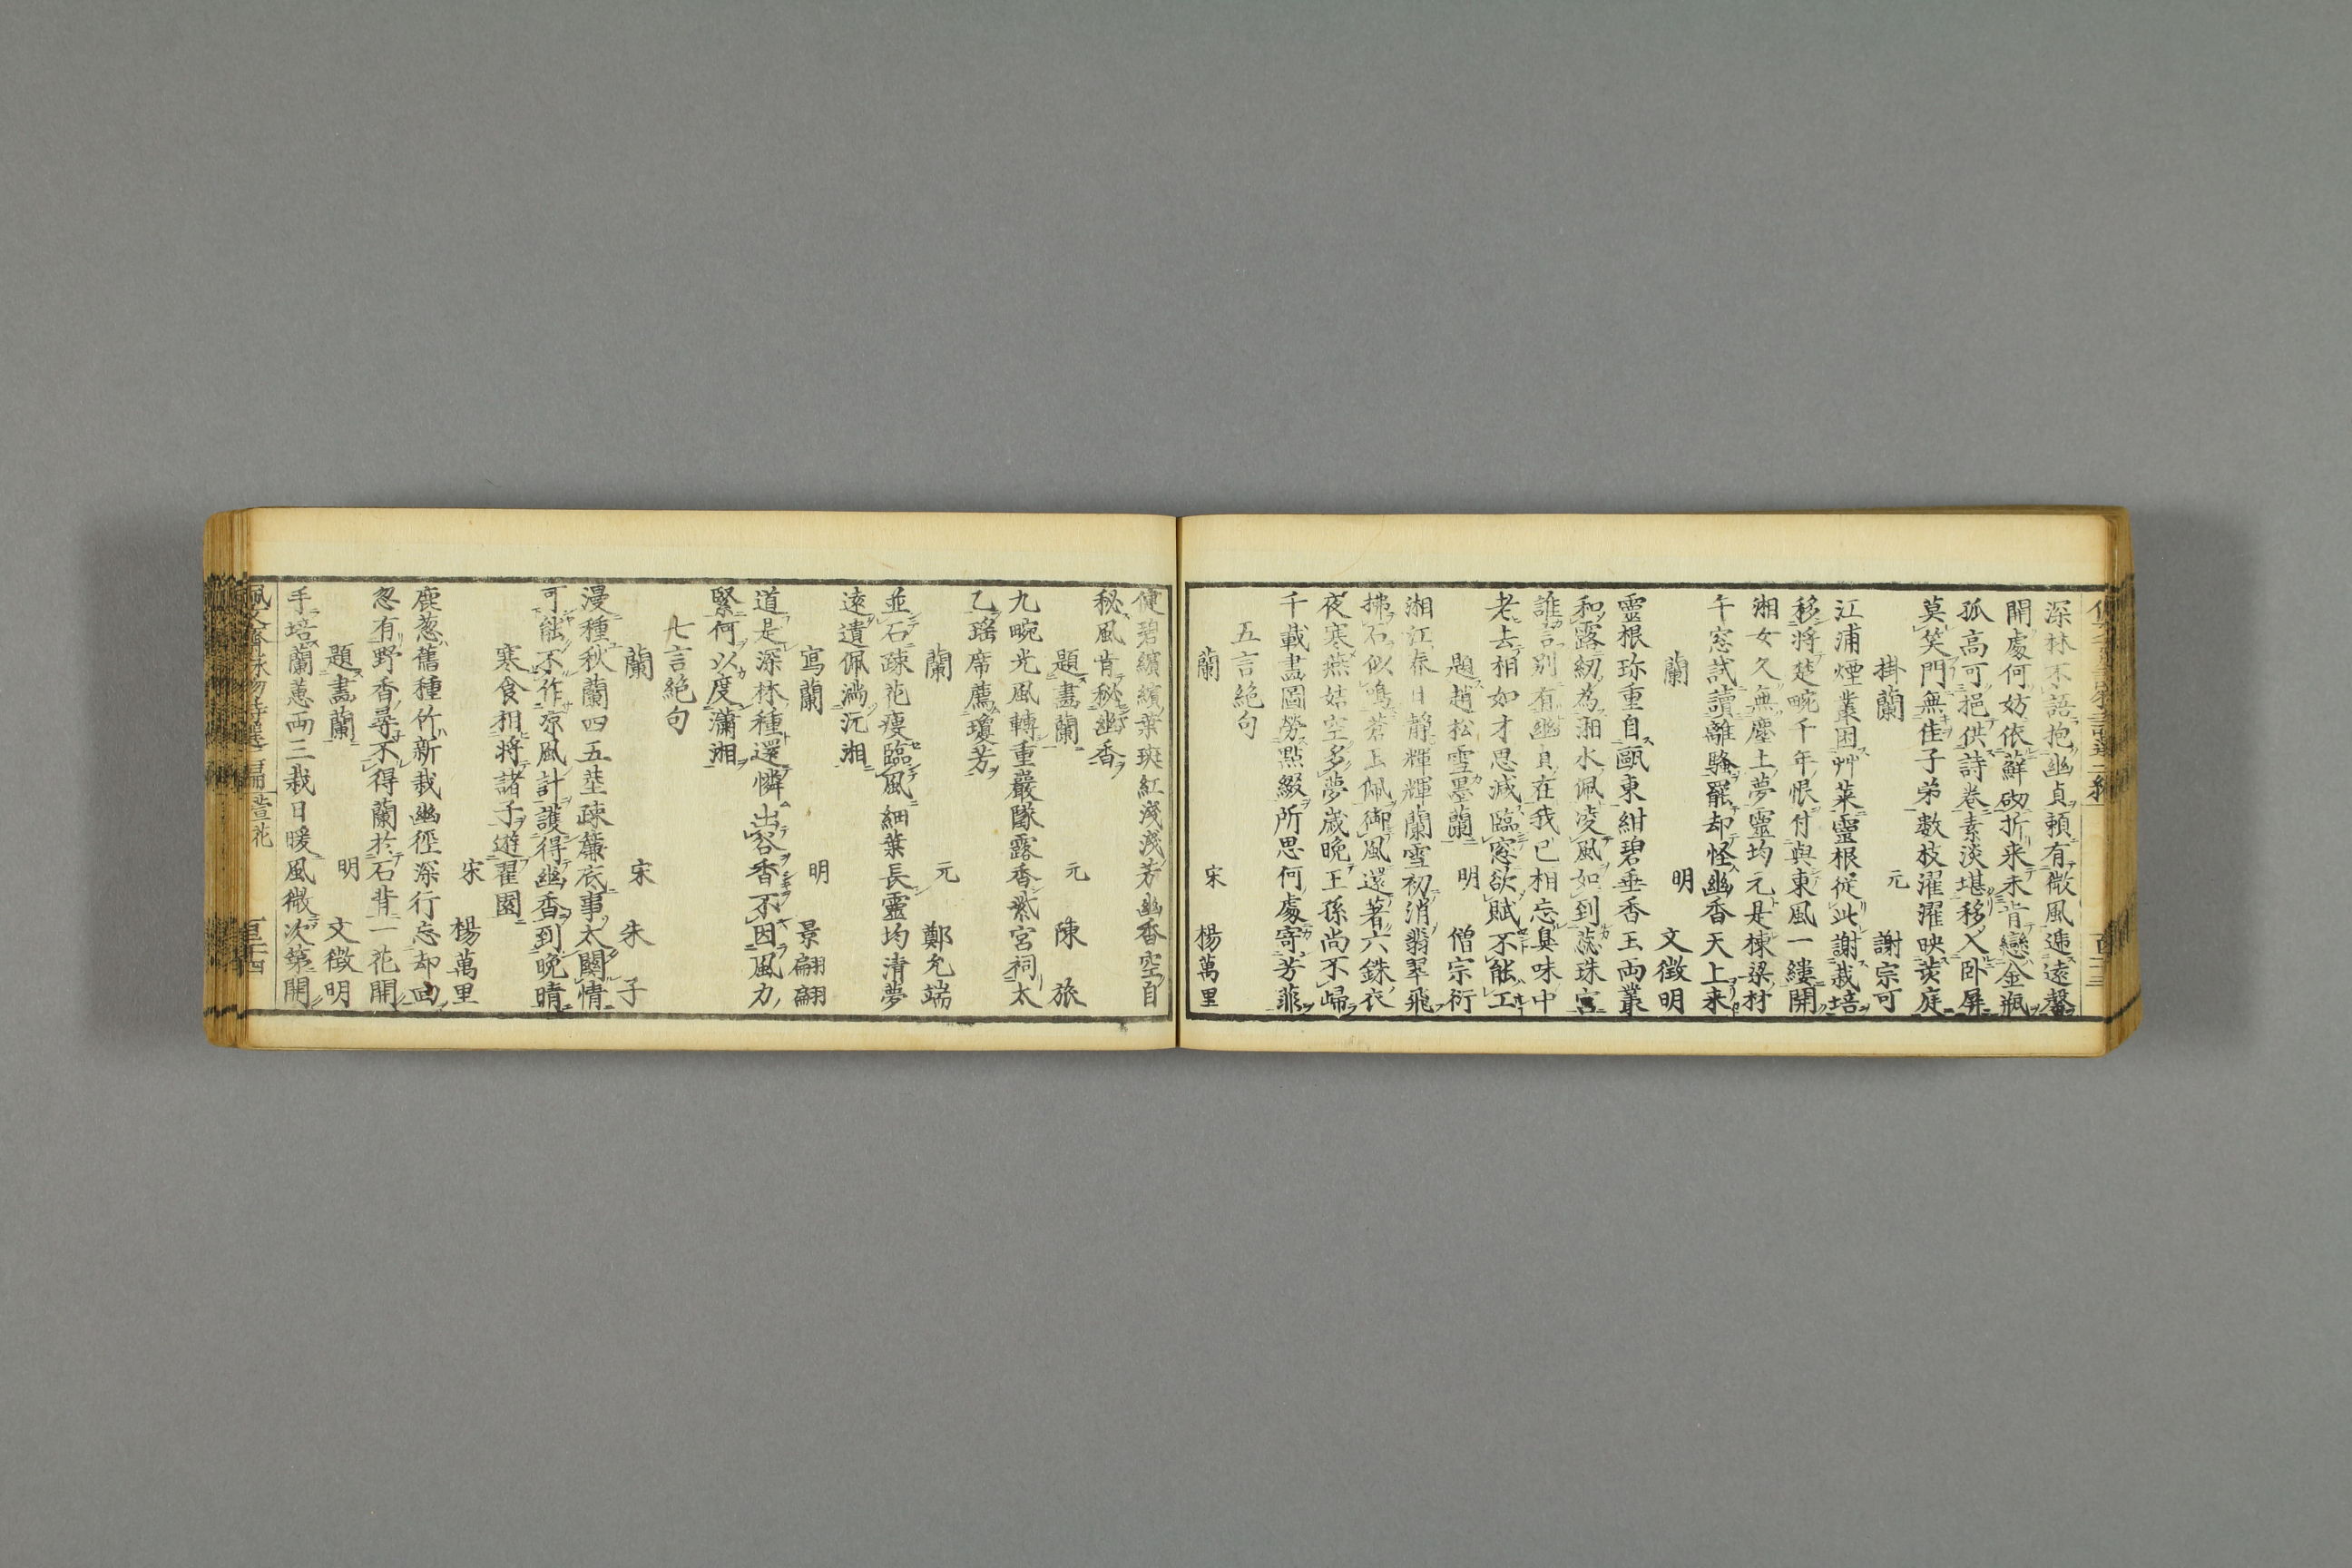 深林不語抱幽貞頼有微風逓遠馨
開處何妨依蘚砌折来未肯戀金瓶
孤高可挹供詩巻素淡堪移入卧屏
莫笑門無佳子弟数枝濯濯映莎庭
掛蘭 元 謝宗可
江浦煙叢困艸莱靈根従此謝栽培
移将楚畹千年恨付與東風一縷開
湘女久無塵土夢靈均元是棟梁材
午窓試讀離騒罷却怪幽香天上来
蘭 明 文徴明
靈根珎重自甌東紺碧垂香玉両叢
和露紉為湘水佩凌風如到蕊珠宮
誰言別有幽貞在我已相忘臭味中
老去相如才思減臨窓欲賦不能工
題趙松雪墨蘭 明 僧宗衍
湘江春日静輝輝蘭雪初消翡翠飛
拂石似鳴蒼玉佩御風還著六銖衣
夜寒燕姞空多夢歳晩王孫尚不歸
千載畫圖勞點綴所思何處寄芳菲
五言絶句
蘭 宋 楊萬里
健碧繽繽葉斑紅淺淺芳幽香空自
秘風肯秘幽香
題畫蘭 元 陳旅
九畹光風轉重巖隊露香紫宮祠太
乙瑤席薦瓊芳
蘭 元 鄭允端
並石疎花痩臨風細葉長靈均清夢
遠遺佩満沅湘
寫蘭 明 景翩翩
道是深林種還憐出谷香不因風力
緊何以度瀟湘
七言絶句
蘭 宋 朱子
漫種秋蘭四五莖疎簾底事太関情
可能不作凉風計護得幽香到晩晴
寒食相将諸子遊翟園
宋 楊萬里
鹿葱舊種竹新栽幽徑深行忘却回
忽有野香尋不得蘭於石背一花開
題畫蘭 明 文徴明
手培蘭蕙両三栽日暖風微次第開